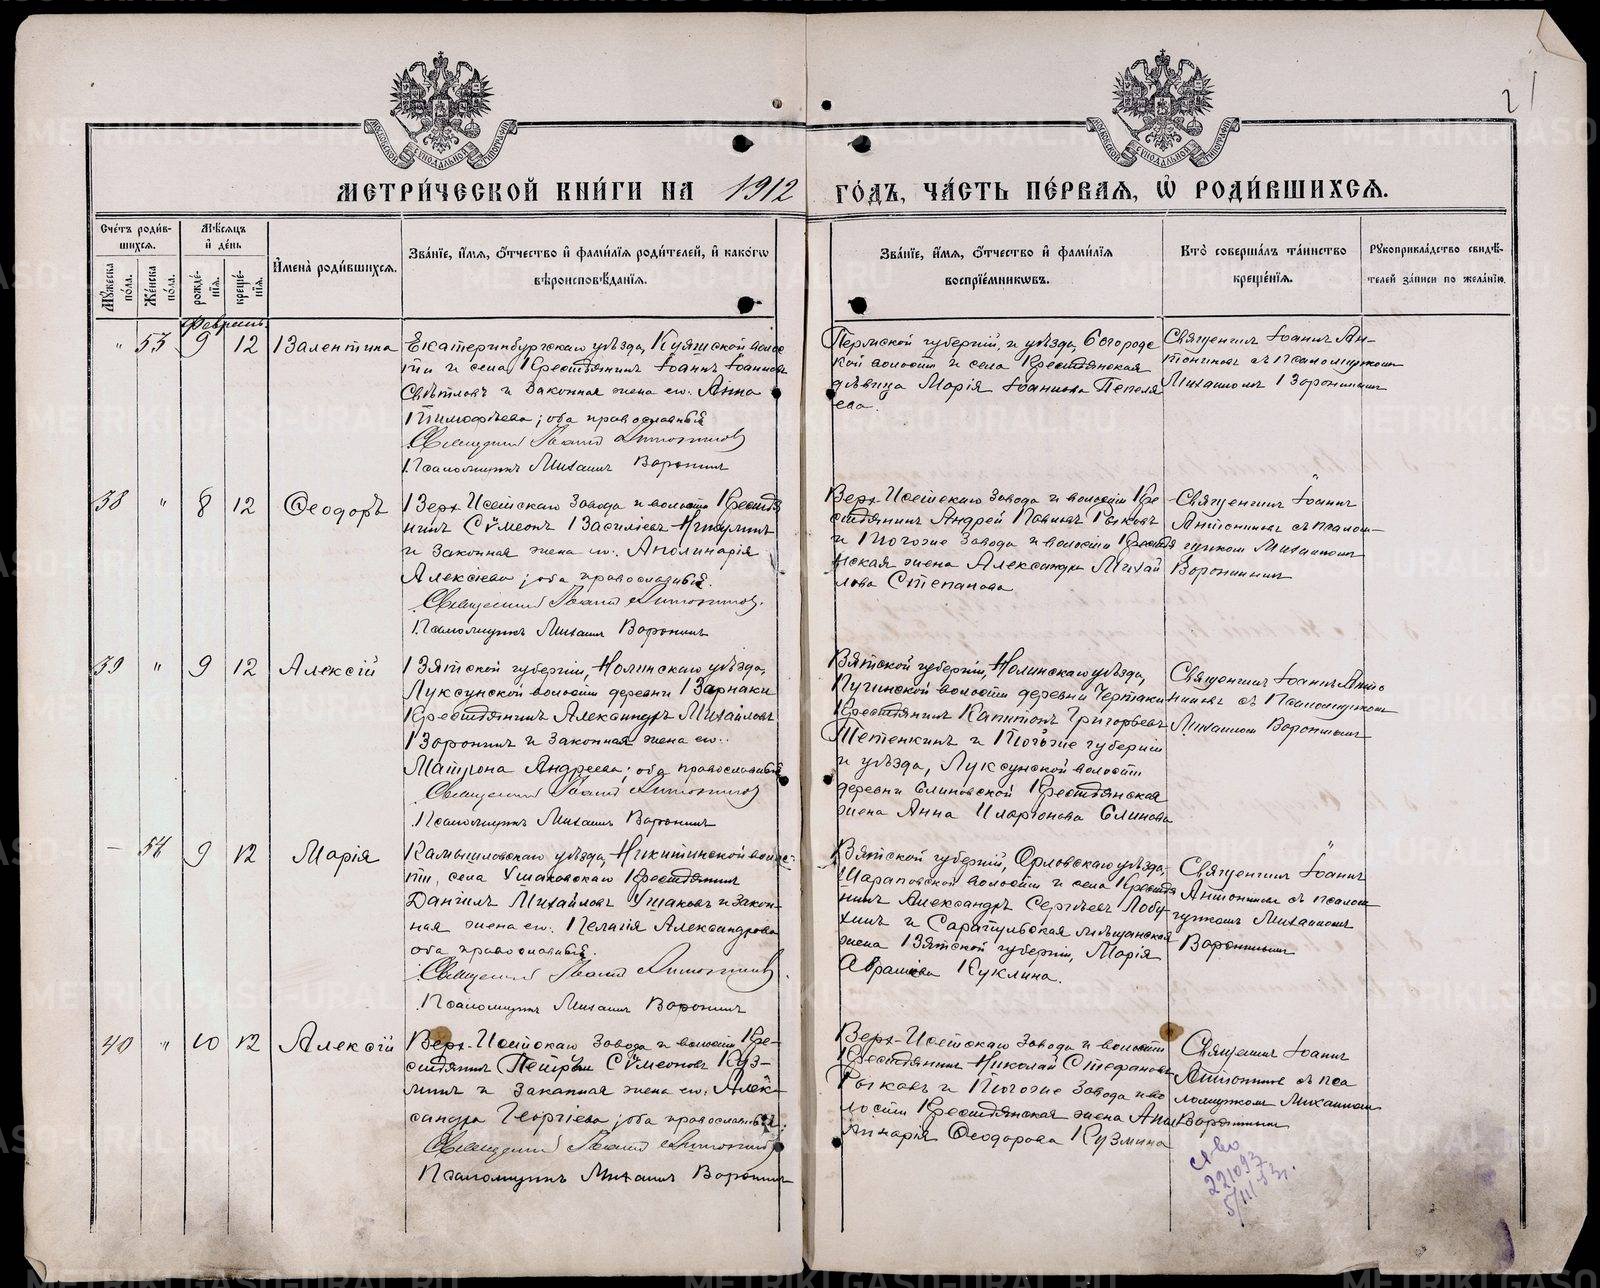 21
МЕТРИ́ЧЕСКОЙ КНИ́ГИ НА 1912 ГО́ДЪ, ЧА́СТЬ ПЕ́РВАЯ, Ѡ҆ РОДИ́ВШИХСѦ.
Сче́тъ роди́в-
шихсѧ.
Мꙋ́жеска по́ла.
Же́нска по́ла.
Мѣ́сѧцъ и҆ де́нь
рожде́-
нїѧ.
креще́-
нїѧ.
И҆мена̀ роди́вшихсѧ.
Зва́нїе, и҆́мѧ, ѻ҆́тчество и҆ фами́лїѧ роди́телей, и҆ како́гѡ
вѣроисповѣ́данїѧ.
Зва́нїе, и҆́мѧ, ѻ҆́тчество и҆ фами́лїѧ
воспрїе́мникѡвъ.
Кто̀ соверша́лъ та́инство
креще́нїѧ.
Рꙋкоприкла́дство свидѣ́-
телей за́писи по жела́нїю.
Февраль
" 53 9 12 Валентина
Екатеринбургскаго уѣзда, Куяшской волос
ти и села Крестьянинъ Іоаннъ Іоанновъ
Свѣтловъ и Законная жена его Анна
Тимофѣева; оба православныя
Священникъ Іоаннъ Антониновъ
Псаломщикъ Михаилъ Воронинъ
Пермской губерніи, и уѣзда, Богородс
кой волости и села Крестьянская
дѣвица Марія Іоаннова Пепеля
ева.
Священникъ Іоаннъ Ан-
тониновъ съ псаломщикомъ
Михаиломъ Воронинымъ
38 " 8 12 Ѳеодоръ
Верх-Исетскаго Завода и волости Крестья
нинъ Сѵмеонъ Василіевъ
и Законная жена его Аполинарія
Алексіева; оба православныя.
Священникъ Іоаннъ Антониновъ
Псаломщикъ Михаилъ Воронинъ
Верх-Исетскаго Завода и волости Кре
стьянинъ Андрей Павловъ Рыковъ
и Тогоже Завода и волости Крестья
нская жена Александра Михай
лова Степанова
Священникъ Іоаннъ
Антониновъ съ псалом-
щикомъ Михаиломъ
Воронинымъ
39 " 9 12 Алексій
Вятской губерніи, Нолинскаго уѣзда,
Луксунской волости деревни Варнаки
Крестьянинъ Александръ Михайловъ
Воронинъ и Законная жена его
Матрона Андреева; оба православныя
Священникъ Іоаннъ Антониновъ
Псаломщикъ Михаилъ Воронинъ
Вятской губерніи, Нолинскаго уѣзда,
волости деревни Чертаки
Крестьянинъ Капитонъ Григорьевъ
Тетенкинъ и Тогоже губерніи
и уѣзда, Луксунской волости
деревни Блиновской Крестьянская
жена Анна Иларіонова Блинова
Священникъ Іоаннъ Анто
ниновъ съ Псаломщикомъ
Михаиломъ Воронинымъ
— 54 9 12 Марія
Камышловскаго уѣзда, Никитинской волос-
ти, села Ушаковскаго Крестьянинъ
Даніилъ Михайловъ Ушаковъ и Закон-
ная жена его Пелагія Александрова
оба православныя.
Священникъ Іоаннъ Антониновъ
Псаломщикъ Михаилъ Воронинъ
Вятской губерніи, Орловскаго уѣзда,
Шараповской волости и села Крестья
нинъ Александръ Сергѣевъ Лобу
хинъ и Сарапульская мѣщанская
жена Вятской губерніи, Марія
Аврамова Куклина.
Священникъ Іоаннъ
Антониновъ съ псалом-
щикомъ Михаиломъ
Воронинымъ
40 " 10 12 Алексій
Верх-Исетскаго Завода и волости Кре-
стьянинъ Петръ Сѵмеоновъ Куз-
минъ и Законная жена его Алек-
сандра Георгіева; оба православныя;
Священникъ Іоаннъ Антониновъ
Псаломщикъ Михаилъ Воронинъ
Верх-Исетскаго Завода и волости
Крестьянинъ Николай Стефановъ
Рыковъ и Тогоже Завода и во
лости Крестьянская жена Апол
линарія Ѳеодорова Кузмина
Священникъ Іоаннъ
Антониновъ съ пса
ломщикомъ Михаиломъ
Воронинымъ
св-во
221093
5/III 53г.
METRIKI.GASO-URAL.RU